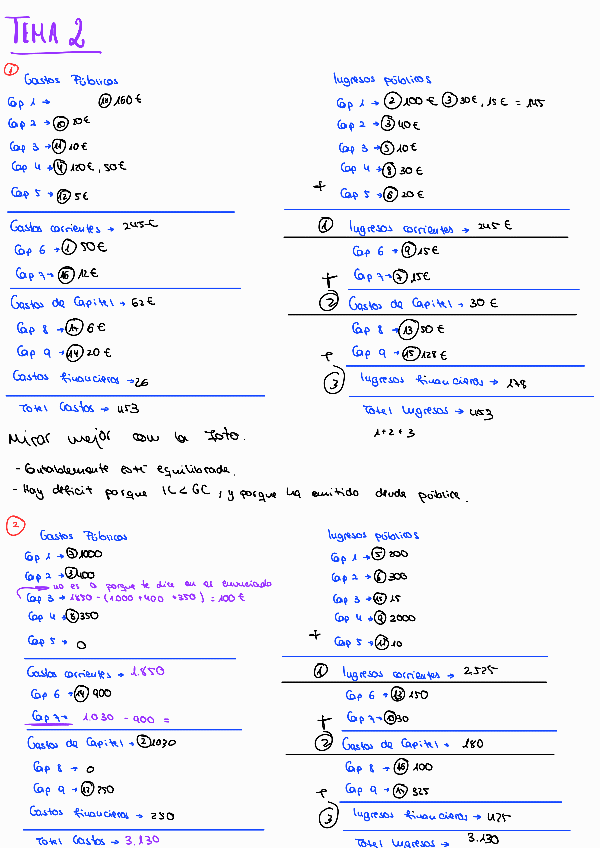 TEMA 2
1
Gastos Públicos
Cap 1 → 18 160 €
Cap 2 → 10 80 €
Cap 3 → 11 10 €
Cap 4 → 4 120 €, 50 €
Cap 5 → 12 5 €
Gastos corrientes →
Cap 6 → 1 50 €
Cap 7 → 16 12 €
Gastos de Capital → 62 €
Cap 8 → 6 €
Cap 9 → 14 20 €
Gastos financieros → 26
Total Gastos → 453
Ingresos públicos
Cap 1 → 2 100 € 3 30 €, 15 € = 145
Cap 2 → 3 40 €
Cap 3 → 5 10 €
Cap 4 → 8 30 €
+ Cap 5 → 6 20 €
1 Ingresos corrientes → 245 €
Cap 6 → 9 15 €
+ Cap 7 → 7 15 €
2 Gastos de Capital → 30 €
Cap 8 → 13 50 €
+ Cap 9 → 15 128 €
3 Ingresos financieros → 178
Total Ingresos → 453
1+2+3
Mirar mejor con la Foto.
- Contablemente está equilibrada.
- Hay déficit porque IC < GC, y porque ha emitido deuda pública.
2
Gastos Públicos
Cap 1 → 1000
Cap 2 → 3 400
no es 0 porque te dice en el enunciado
Cap 3 → 1850 - (1000 + 400 + 350) = 100 €
Cap 4 → 8 350
Cap 5 → 0
Gastos corrientes → 1.850
Cap 6 → 14 900
Cap 7 → 1030 - 900 =
Gastos de Capital → 2 1030
Cap 8 → 0
Cap 9 → 250
Gastos financieros → 250
Total Gastos → 3.130
Ingresos públicos
Cap 1 → 5 200
Cap 2 → 6 300
Cap 3 → 15
Cap 4 → 9 2000
+ Cap 5 → 10
1 Ingresos corrientes → 2.525
Cap 6 → 150
+ Cap 7 → 30
2 Gastos de Capital → 180
Cap 8 → 16 100
+ Cap 9 → 325
3 Ingresos financieros → 425
Total Ingresos → 3.130